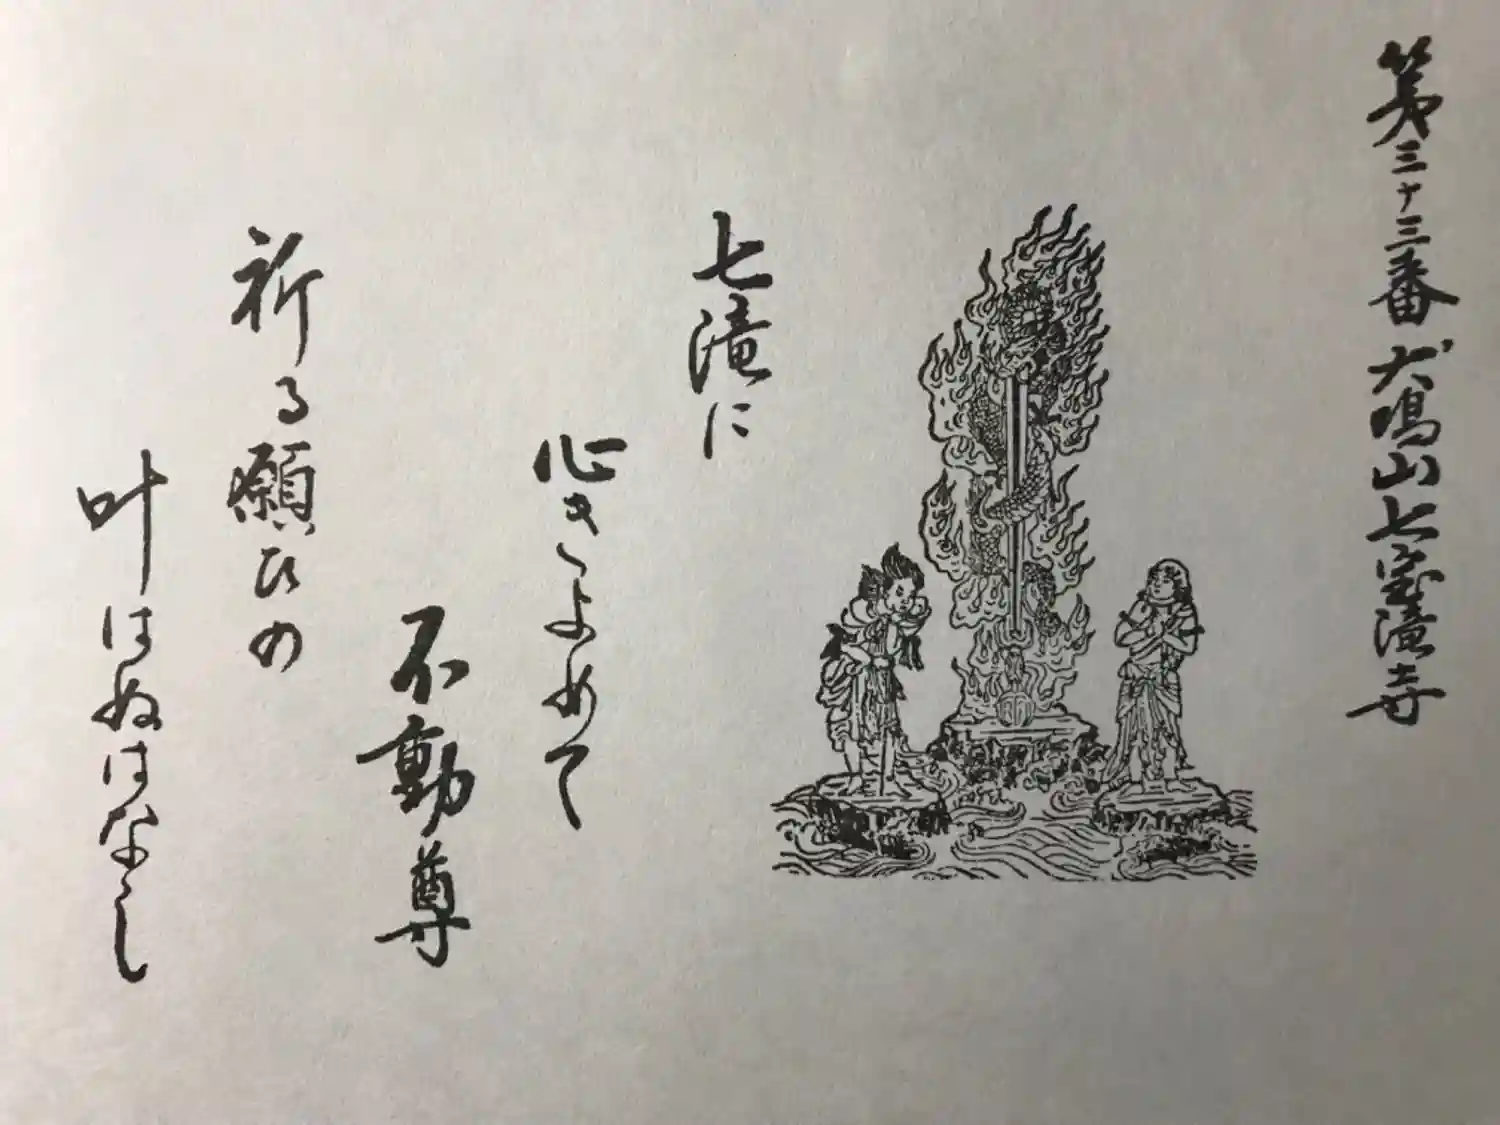 第三十三番 犬鳴山七宝滝寺
七滝に
心きよめて
不動尊
祈る願ひの
叶はぬはなし